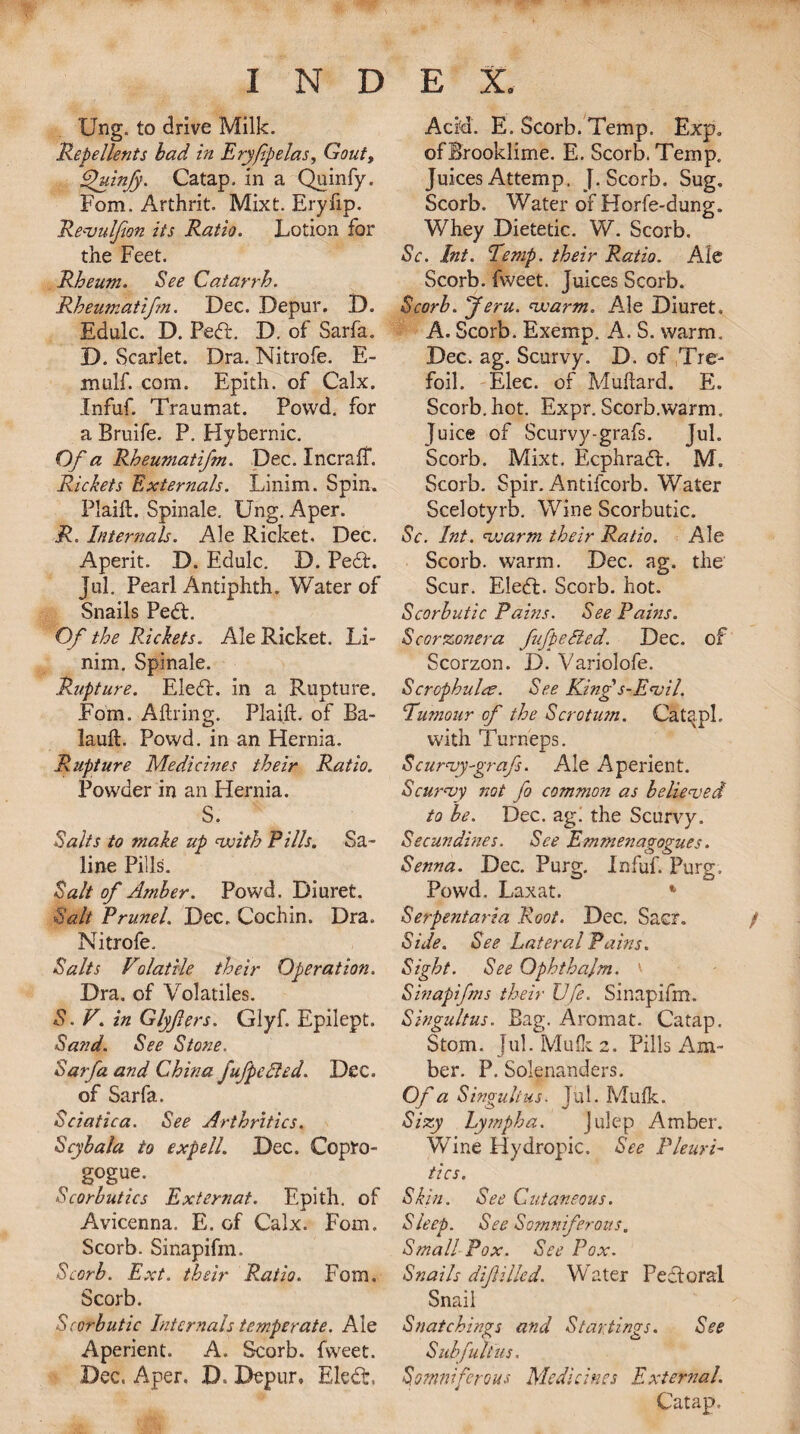 INDEX.
Ung. to drive Milk.
Repellents bad in Eryſipelas, Gout,
Quinſy. Catap. in a Quinſy.
Fom. Arthrit. Mixt. Eryſip.
Revulſion its Ratio. Lotion for
the Feet.
Rheum. See Catarrh.
Rheumatiſm. Dec. Depur. D.
Edulc. D. Pect. D. of Sarſa.
D. Scarlet. Dra. Nitroſe. E-
mulſ. com. Epith. of Calx.
Infuſ. Traumat. Powd. for
a Bruiſe. P. Hybernic.
Of a Rheumatiſm. Dec. Incraſſ.
Rickets Externals. Linim. Spin.
Plaiſt. Spinale. Ung. Aper.
R. Internals. Ale Ricket. Dec.
Aperit. D. Edulc. D. Pect.
Jul. Pearl Antiphth. Water of
Snails Pect.
Of the Rickets. Ale Ricket. Li-
nim. Spinale.
Rupture. Elect. in a Rupture.
Fom. Aſtring. Plaiſt. of Ba-
lauſt. Powd. in an Hernia.
Rupture Medicines their Ratio.
Powder in an Hernia.
S.
Salts to make up with Pills. Sa-
line Pills.
Salt of Amber. Powd. Diuret.
Salt Prunel. Dec. Cochin. Dra.
Nitroſe.
Salts Volatile their Operation.
Dra. of Volatiles.
S. V. in Glyſters. Glyſ. Epilept.
Sand. See Stone.
Sarſa and China ſuſpected. Dec.
of Sarſa.
Sciatica. See Arthritics.
Scybala to expell. Dec. Copro-
gogue.
Scorbutics Externat. Epith. of
Avicenna. E. of Calx. Fom.
Scorb. Sinapiſm.
Scorb. Ext. their Ratio. Fom.
Scorb.
Scorbutic Internals temperate. Ale
Aperient. A. Scorb. ſweet.
Dec. Aper. D. Depur. Elect.
Acid. E. Scorb. Temp. Exp.
of Brooklime. E. Scorb. Temp.
Juices Attemp. J. Scorb. Sug.
Scorb. Water of Horſe-dung.
Whey Dietetic. W. Scorb.
Sc. Int. Temp. their Ratio. Ale
Scorb. ſweet. Juices Scorb.
Scorb. Jeru. warm. Ale Diuret.
A. Scorb. Exemp. A. S. warm.
Dec. ag. Scurvy. D. of Tre-
foil. Elec. of Muſtard. E.
Scorb. hot. Expr. Scorb. warm.
Juice of Scurvy-graſs. Jul.
Scorb. Mixt. Ecphract. M.
Scorb. Spir. Antiſcorb. Water
Scelotyrb. Wine Scorbutic.
Sc. Int. warm their Ratio. Ale
Scorb. warm. Dec. ag. the
Scur. Elect. Scorb. hot.
Scorbutic Pains. See Pains.
Scorzonera ſuſpected. Dec. of
Scorzon. D. Varioloſe.
Scrophulæ. See King's-Evil.
Tumour of the Scrotum. Catapl.
with Turneps.
Scurvy-graſs. Ale Aperient.
Scurvy not ſo common as believed
to be. Dec. ag. the Scurvy.
Secundines. See Emmenagogues.
Senna. Dec. Purg. Infuſ. Purg.
Powd. Laxat.
Serpentaria Root. Dec. Sacr.
Side. See Lateral Pains.
Sight. See Ophthalm.
Sinapiſms their Uſe. Sinapiſm.
Singultus. Bag. Aromat. Catap.
Stom. Jul. Muſk 2. Pills Am-
ber. P. Solenanders.
Of a Singultus. Jul. Muſk.
Sizy Lympha. Julep Amber.
Wine Hydropic. See Pleuri-
tics.
Skin. See Cutaneous.
Sleep. See Somniferous.
Small-Pox. See Pox.
Snails diſtilled. Water Pectoral
Snail
Snatchings and Startings. See
Subſultus.
Somniferous Medicines External.
Catap.